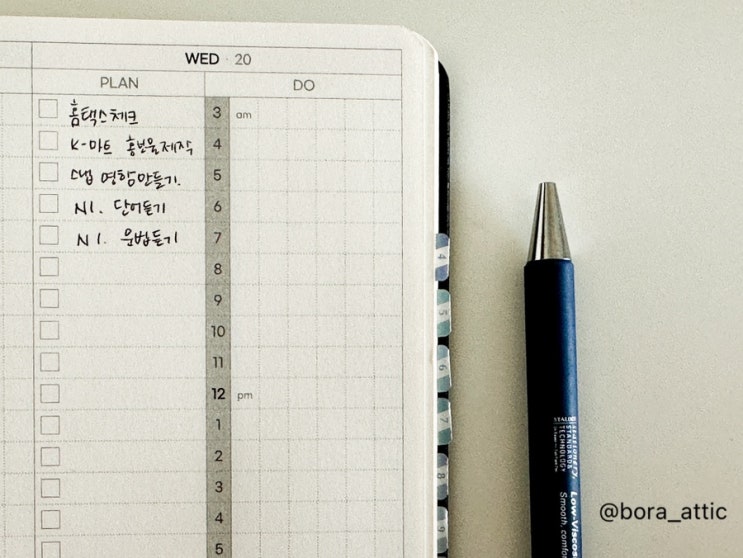 WED · 20
PLAN
DO
홈택스체크
3 am
K-마트 홍보물제작
4
스냅 명함만들기.
5
N1. 단어듣기
6
N1. 문법듣기
7
8
9
10
11
12 pm
1
2
3
4
5
4
5
6
7
8
9
STALOGY
STANDARD &
TECHNOLOGY
Low-Viscos
Smooth, comfo
@bora_attic